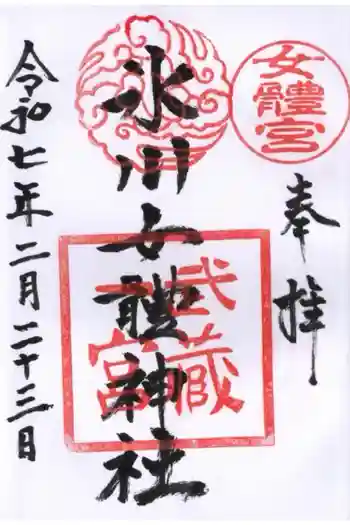 奉拝
女體宮
氷川女體神社
武蔵一宮
令和七年二月二十三日